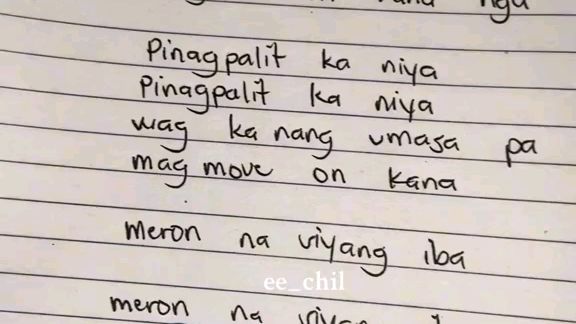 nga
Pinagpalit ka niya
Pinagpalit ka niya
wag ka nang umasa pa
mag move on kana
meron na viyang iba
ee_chil
meron na